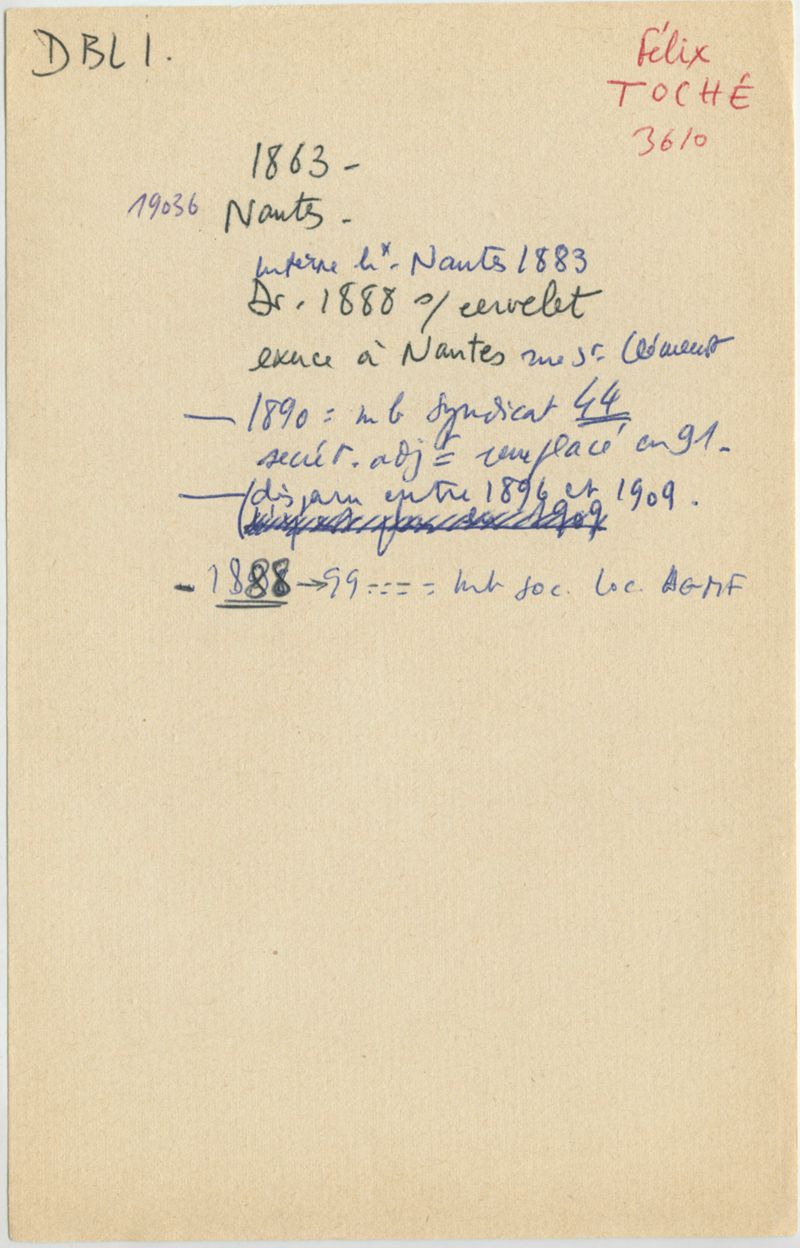 DBL 1.
Félix
TOCHÉ
3610
1863 -
19036 Nantes -
interne hx. Nantes 1883
Dr. 1888 s/ cervelet
exerce à Nantes rue St. Clément
— 1890 = mb Syndicat 44
secrét. adjt = remplacé en 91 -
— (disparu entre 1896 et 1909.
1909
- 1888 → 99 ---- = mb soc. loc. AGMF